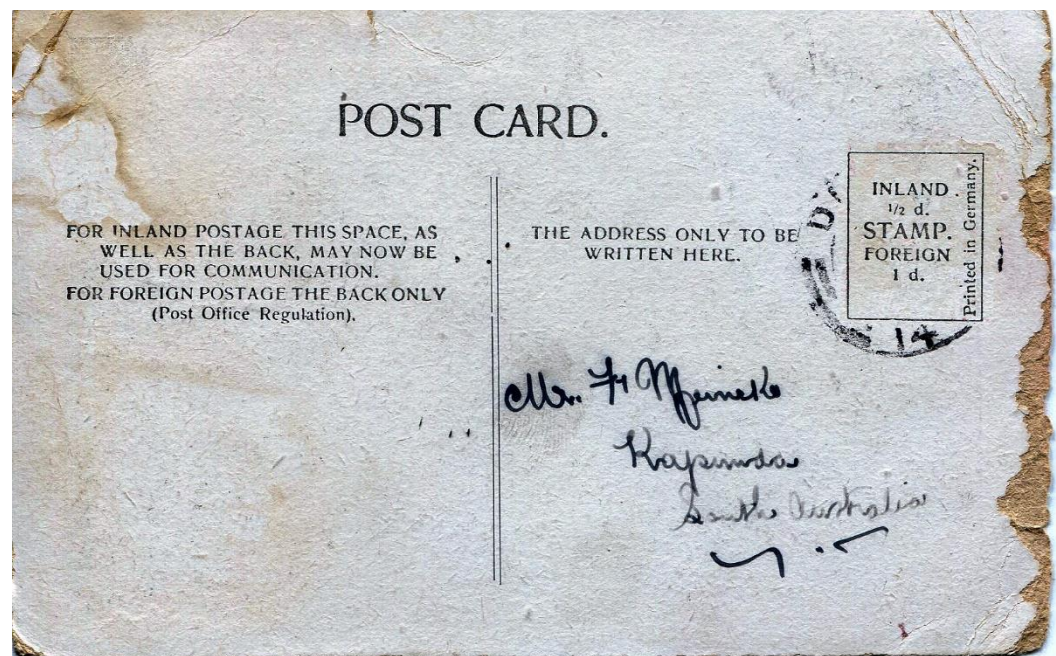 POST CARD.
FOR INLAND POSTAGE THIS SPACE, AS
WELL AS THE BACK, MAY NOW BE
USED FOR COMMUNICATION.
FOR FOREIGN POSTAGE THE BACK ONLY
(Post Office Regulation).
THE ADDRESS ONLY TO BE
WRITTEN HERE.
INLAND
1/2 d.
STAMP.
FOREIGN
1 d.
Printed in Germany.
14
Mr. Fr
Kapunda
South Australia